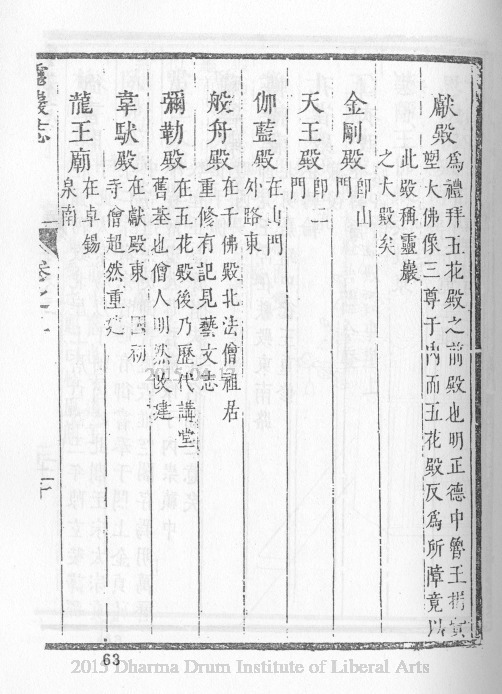 獻殿 為禮拜五花殿之前殿也明正德中魯王捐資
塑大佛像三尊于內而五花殿反為所障竟以
此殿稱靈巖
之大殿矣
金剛殿 即山
門
天王殿 即二
門
伽藍殿 在山門
外路東
般舟殿 在千佛殿北法僧祖居
重修有記見藝文志
彌勒殿 在五花殿後乃歷代講堂
舊基也僧人明然改建
韋馱殿 在獻殿東國初
寺僧超然重建
龍王廟 在卓錫
泉南
靈巖志
卷之
63
2015 Dharma Drum Institute of Liberal Arts